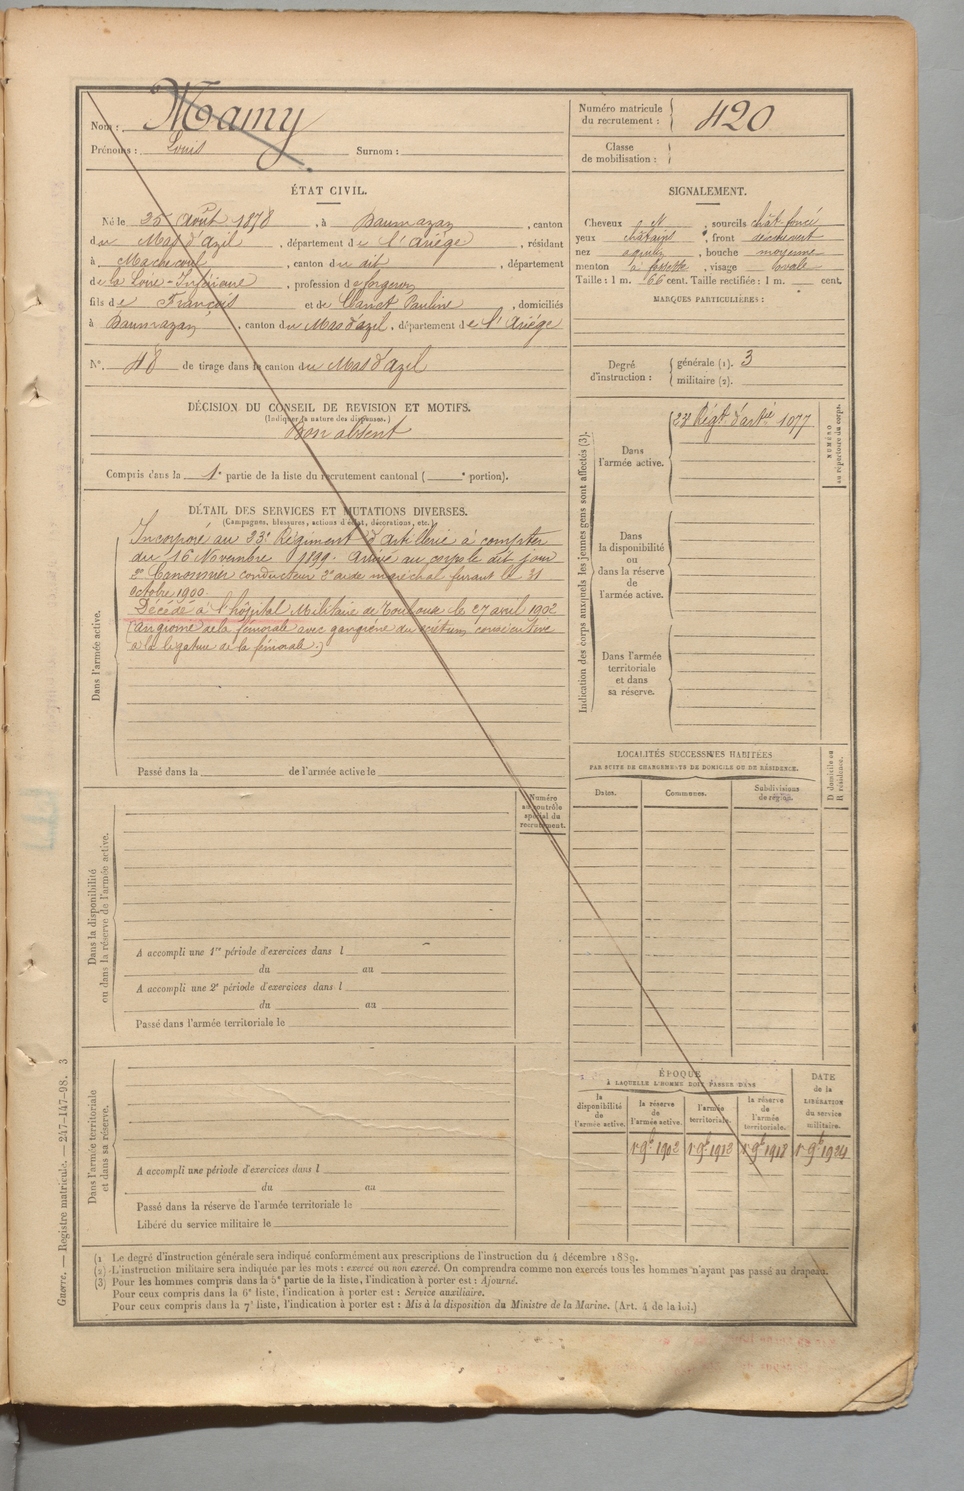 Nom : Mamy
Prénoms : Louis Surnom :
Numéro matricule du recrutement : 420
Classe de mobilisation :
ÉTAT CIVIL.
Né le 25 Août 1878, à , canton
du Mas d'azil, département de l'Ariége, résidant
à Machecoul, canton du dit, département
de la Loire-Inférieure, profession de forgeron
fils de François et de Pauline, domiciliés
à , canton du Mas d'azil, département de l'Ariége
N°. 48 de tirage dans le canton du Mas d'azil
DÉCISION DU CONSEIL DE REVISION ET MOTIFS.
(Indiquer la nature des dispenses.)
Bon absent
Compris dans la 1e partie de la liste du recrutement cantonal ( e portion).
DÉTAIL DES SERVICES ET MUTATIONS DIVERSES.
(Campagnes, blessures, actions d'éclat, décorations, etc.)
Dans l'armée active.
Incorporé au 23e Régiment d'artillerie à compter
du 16 Novembre 1899. Arrivé au corps le dit jour
2e Canonnier conducteur 2e aide maréchal ferrant le 31
octobre 1900.
Décédé à l'hôpital Militaire de Toulouse le 27 avril 1902
(angiome de la fémorale avec gangrène du consécutive
à la ligature de la fémorale.)
Passé dans la de l'armée active le
SIGNALEMENT.
Cheveux , sourcils chât foncé
yeux châtains, front découvert
nez aquilin, bouche moyenne
menton à fossette, visage ovale
Taille : 1 m. 66 cent. Taille rectifiée : 1 m. cent.
MARQUES PARTICULIÈRES :
Degré d'instruction :
générale (1). 3
militaire (2).
Indication des corps auxquels les jeunes gens sont affectés (3).
NUMÉRO au répertoire du corps.
Dans l'armée active.
23e Régt d'artie 1077
Dans la disponibilité ou dans la réserve de l'armée active.
Dans l'armée territoriale et dans sa réserve.
LOCALITÉS SUCCESSIVES HABITÉES
PAR SUITE DE CHANGEMENTS DE DOMICILE OU DE RÉSIDENCE.
Dates. Communes. Subdivisions de région.
D domicile ou R résidence.
Numéro au contrôle spécial du recrutement.
Dans la disponibilité ou dans la réserve de l'armée active.
A accompli une 1re période d'exercices dans l
du au
A accompli une 2e période d'exercices dans l
du au
Passé dans l'armée territoriale le
Dans l'armée territoriale et dans sa réserve.
A accompli une période d'exercices dans l
du au
Passé dans la réserve de l'armée territoriale le
Libéré du service militaire le
ÉPOQUE
À LAQUELLE L'HOMME DOIT PASSER DANS
la disponibilité de l'armée active.
la réserve de l'armée active.
l'armée territoriale.
la réserve de l'armée territoriale.
DATE de la LIBÉRATION du service militaire.
1r 9b 1902 1r 9b 1912 1r 9b 1918 1r 9b 1924
(1 Le degré d'instruction générale sera indiqué conformément aux prescriptions de l'instruction du 4 décembre 1889.
(2) L'instruction militaire sera indiquée par les mots : exercé ou non exercé. On comprendra comme non exercés tous les hommes n'ayant pas passé au drapeau.
(3) Pour les hommes compris dans la 5e partie de la liste, l'indication à porter est : Ajourné.
Pour ceux compris dans la 6e liste, l'indication à porter est : Service auxiliaire.
Pour ceux compris dans la 7e liste, l'indication à porter est : Mis à la disposition du Ministre de la Marine. (Art. 4 de la loi.)
Guerre. — Registre matricule. — 247-147-98. 3